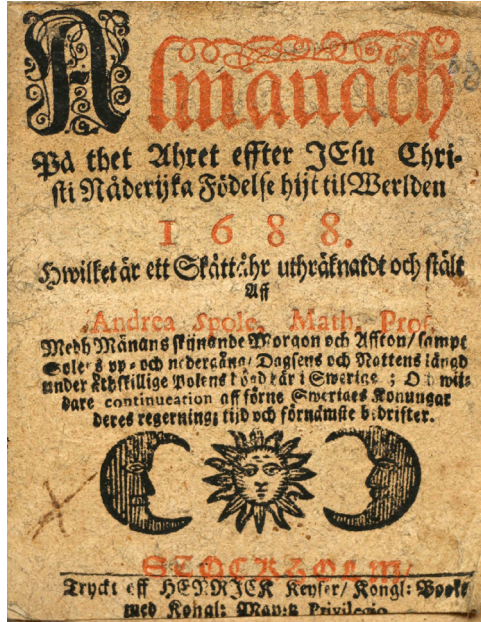 Almanach
På thet Åhret effter JEsu Chri-
sti Nåderijka Födelse hijt til Werlden
1 6 8 8.
Hwilket är ett Skått-åhr uthräknatdt och stält
Aff
Andrea Spole, Math. Prof.
Medh Månans skijnande Morgon och Affton/ sampt
Solens vp- och nedergång/ Dagsens och Nattens längd
under åthskillige Polens högd här i Swerige; Och wij-
dare continueation aff förne Sweriges Konungar
deres regering; tijd och förnämste bedrifter.
STOCKHOLM/
Tryckt aff HENRICK Keyser/ Kongl: Book:
med Kongl: May:tz Privilegio